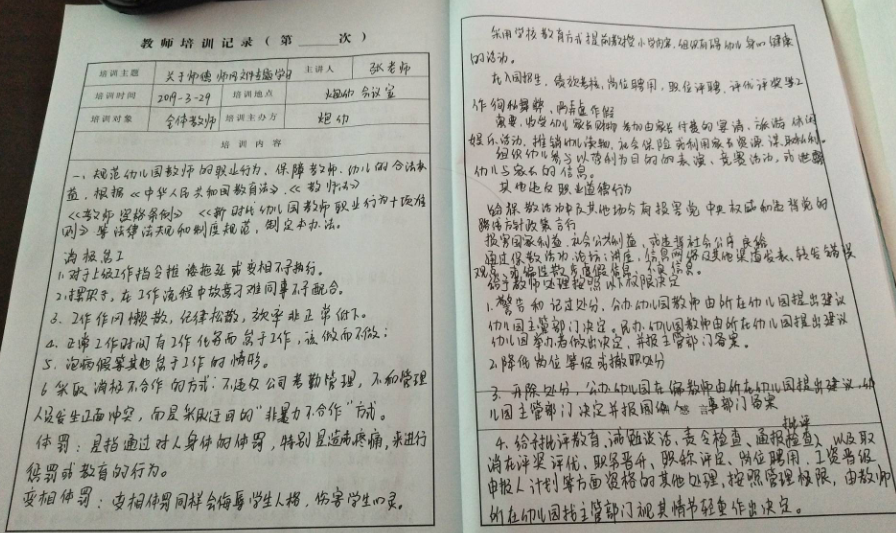 教师培训记录（第 次）
培训主题 关于师德师风文件专题学习 主讲人 张老师
培训时间 2019-3-29 培训地点 幼 会议室
培训对象 全体教师 培训主办方 幼
培训内容
一、规范幼儿园教师的职业行为，保障教师、幼儿的合法权
益，根据《中华人民共和国教育法》、《教师法》
《教师资格条例》《新时代幼儿园教师职业行为十项准
则》等法律法规和制度规范，制定本办法。
消极怠工
1.对于上级工作指令推诿拖延或变相不予执行。
2.擅职守，在工作流程中故意刁难同事不予配合。
3.工作作风懒散，纪律松散，效率非正常低下。
4.正常工作时间有工作任务而怠于工作，该做而不做；
5.泡病假等其他怠于工作的情形。
6 采取消极不合作的方式：不违反公司考勤管理，不和管理
人员发生正面冲突，而是采取迂回的“非暴力不合作”方式。
体罚：是指通过对人身体的体罚，特别是造成疼痛，来进行
惩罚或教育的行为。
变相体罚：变相体罚同样会侮辱学生人格，伤害学生心灵。
采用学校教育方式提前教授小学内容，组织有碍幼儿身心健康
的活动。
在入园招生、绩效考核、岗位聘用、职位评聘、评优评奖等工
作徇私舞弊、弄虚作假
索要、收受幼儿家长财物 参加由家长付费的宴请、旅游 休闲
娱乐活动，推销幼儿读物、社会保险 利用家长资源谋取私利。
组织幼儿参与以营利为目的的表演、竞赛活动，或泄露
幼儿与家长的信息。
其他违反职业道德行为
的保教活动中及其他场合有损害党中央权威和违背党的
路线方针政策言行
损害国家利益，社会公共利益，或违背社会公序良俗
通过保教活动、论坛、讲座、信息网络及其他渠道发表、转发错误
观点，或编造散布虚假信息、不良信息。
给予教师处理按照以下权限决定
1.警告和记过处分，公办幼儿园教师由所在幼儿园提出建议
幼儿园主管部门决定。民办幼儿园教师由所在幼儿园提出建议
幼儿园举办者做出决定，并报主管部门备案。
2.降低岗位等级或撤职处分
3.开除处分，公办幼儿园在编教师由所在幼儿园提出建议，幼
儿园主管部门决定并报同级人 事部门备案
批评
4.给予批评教育、诫勉谈话、责令检查、通报检查，以及取
消在评奖评优、职务晋升、职称评定、岗位聘用、工资晋级
申报人 计划等方面资格的其他处理，按照管理权限，由教师
所在幼儿园或主管部门视其情节轻重作出决定。